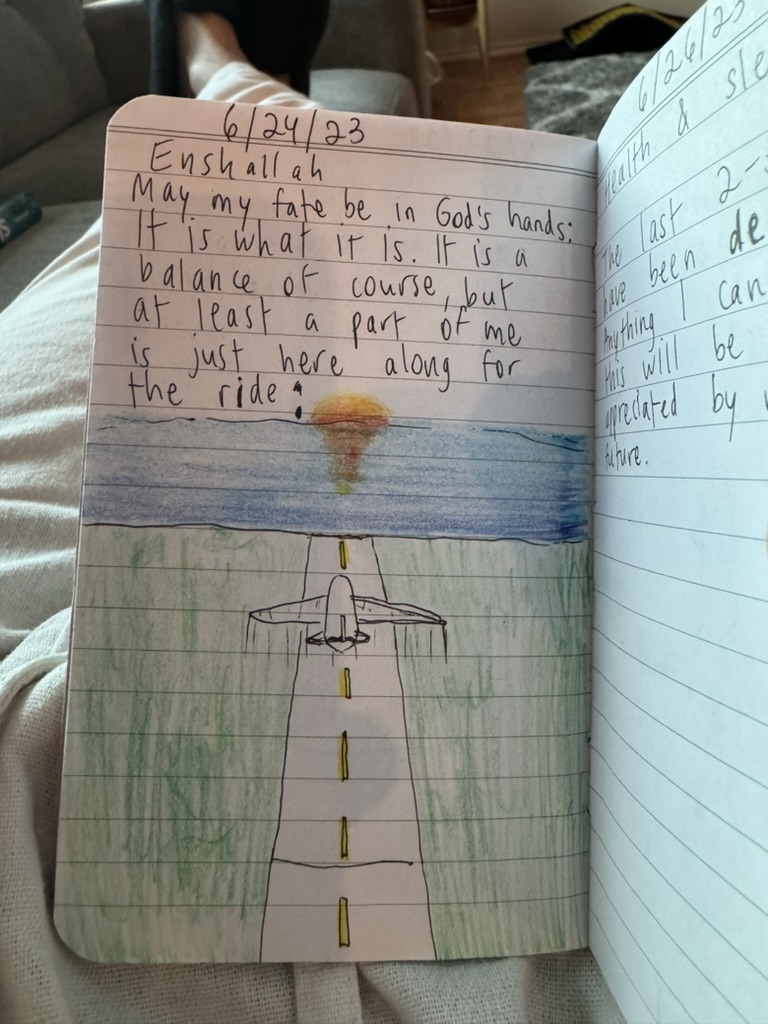 6/24/23
Enshallah
May my fate be in God's hands:
It is what it is. It is a
balance of course, but
at least a part of me
is just here along for
the ride:
6/26/23
Health & sle
The last 2-
have been de
Anything I can
this will be
appreciated by
future.